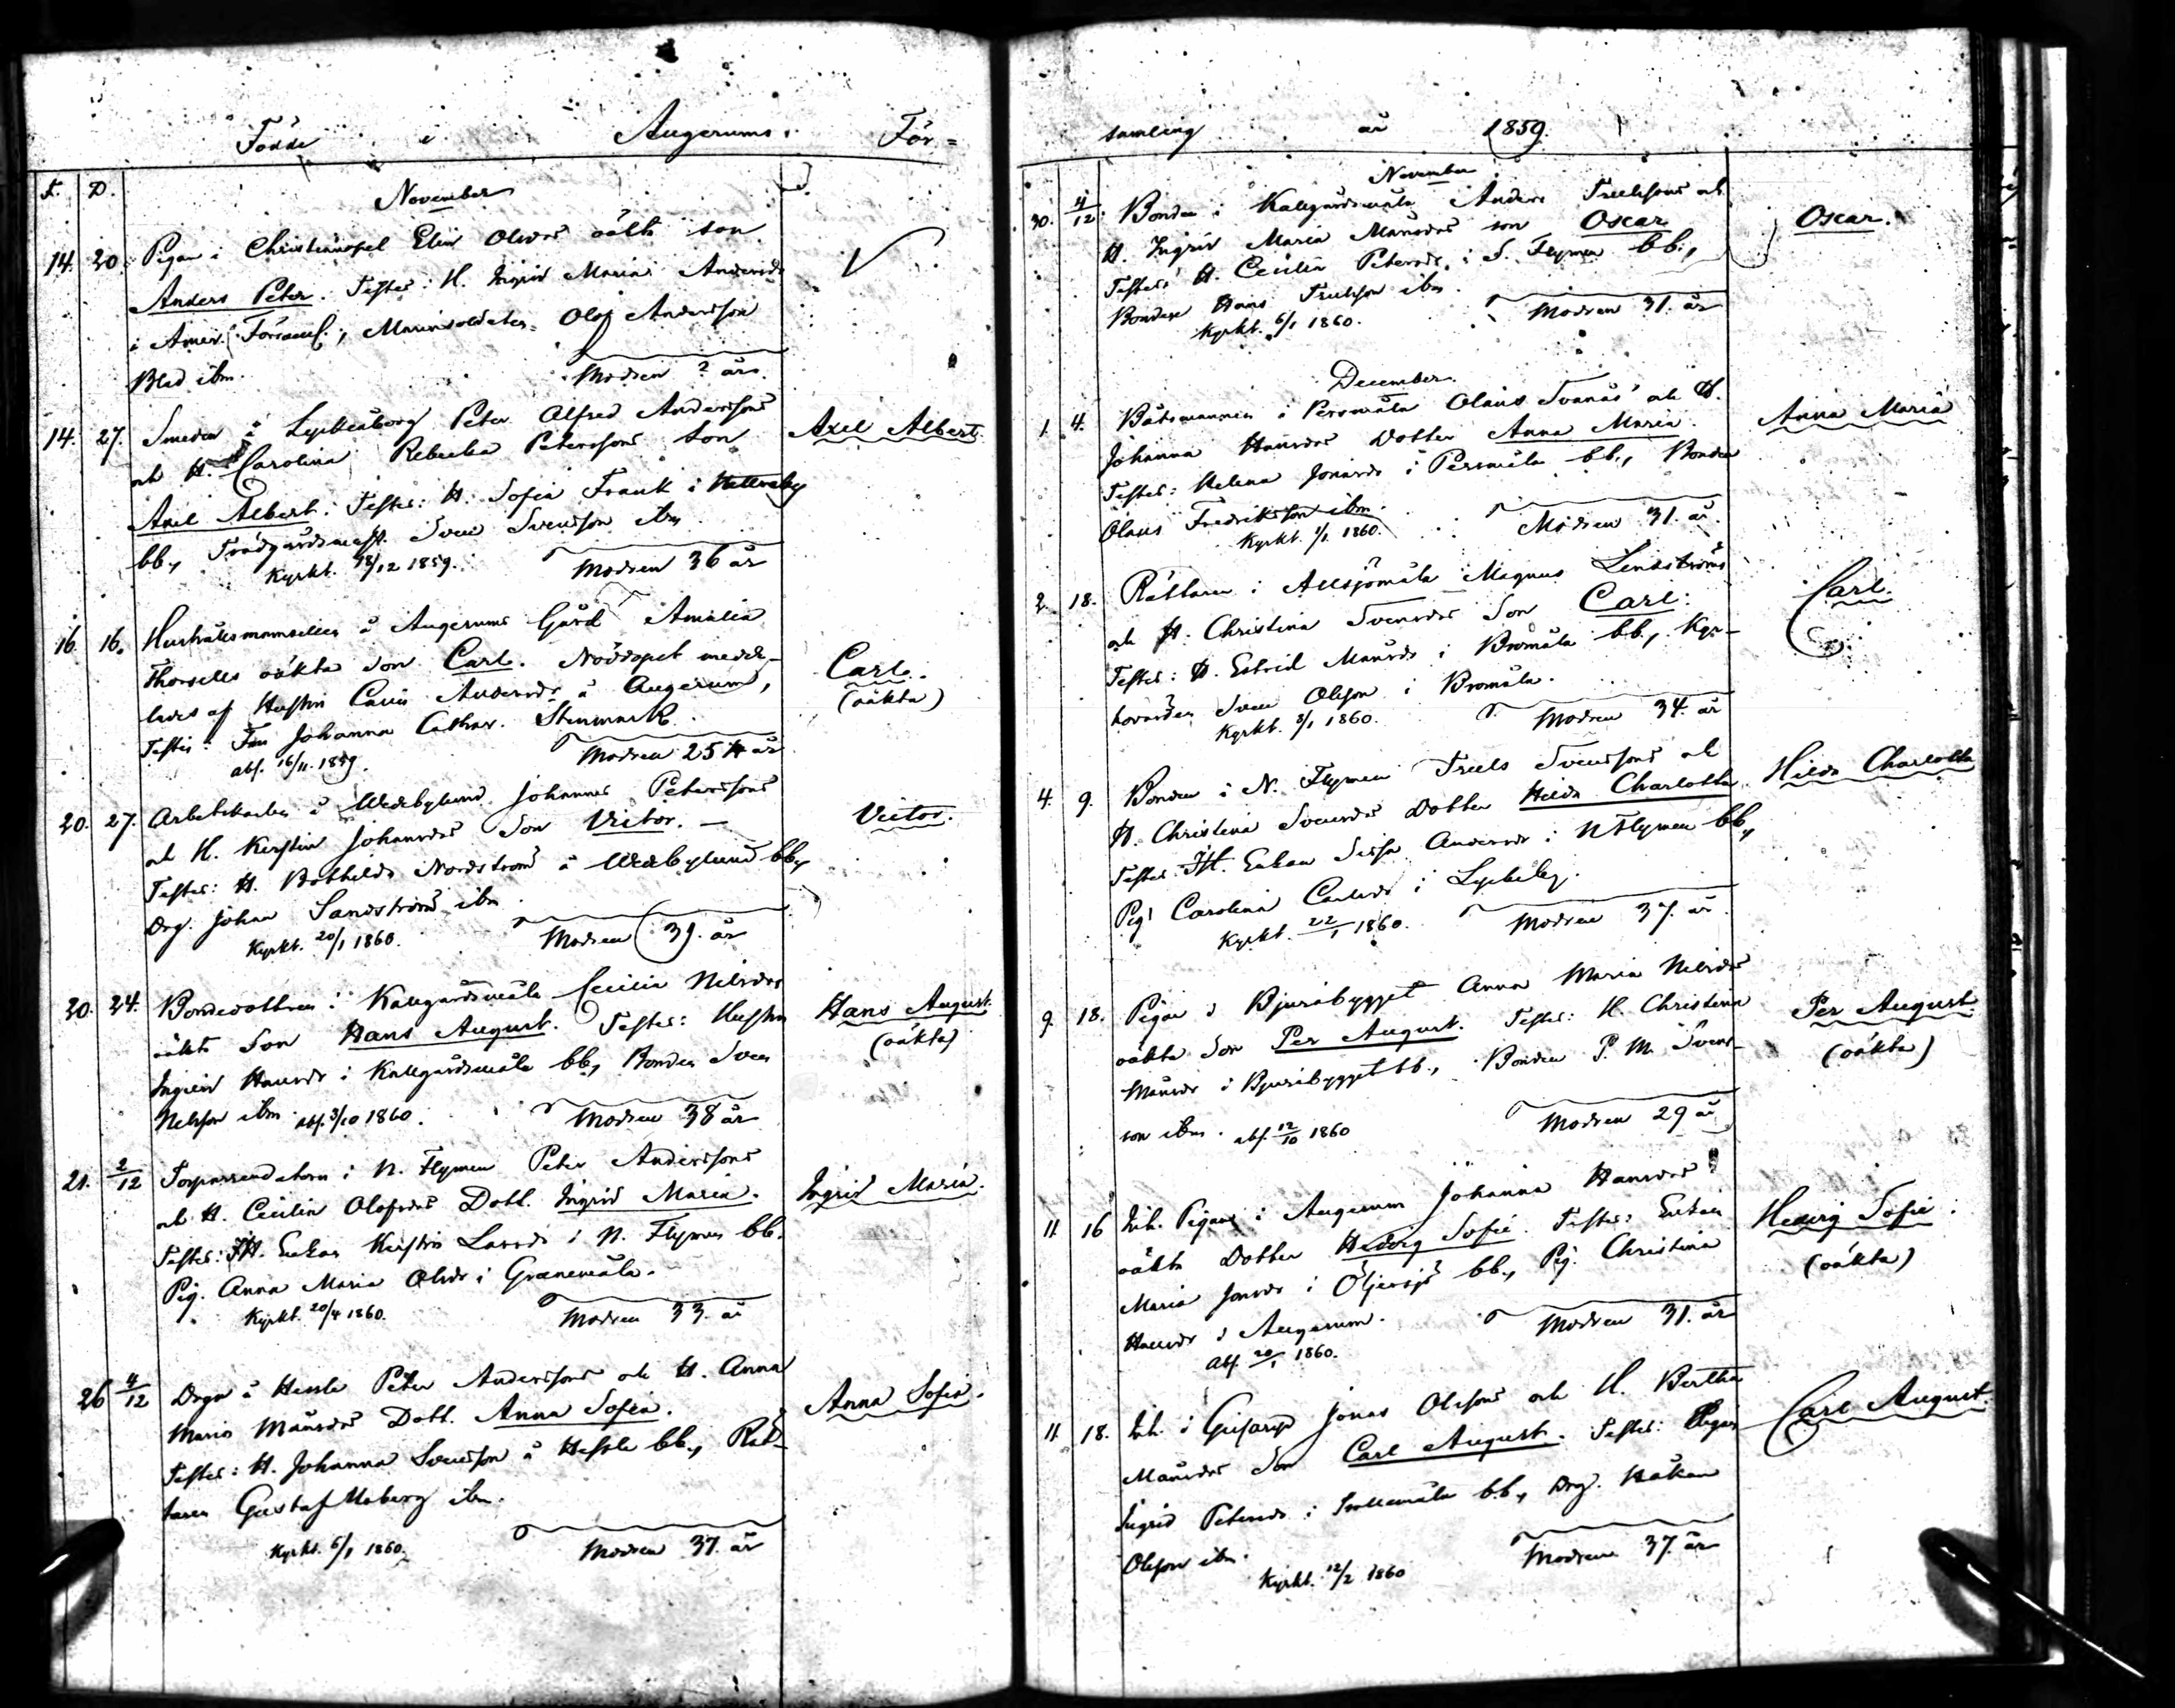 Födde i Augerums För=
F. D. November
14. 20. Pigan i Christianopel Elin Olsdrs oäkta son
Anders Peter. Testes: H. Ingrid Maria Andersdr
i Amir. Förssaml., Marinsoldaten Olof Andersson
Blad ibm. Modren ? år.
14. 27. Smeden å Lyckåborg Peter Alfred Anderssons Axel Albert.
och H. Carolina Rebecka Peterssons Son
Axel Albert. Testes: H. Sofia Frank i Vettereby
bb., Trädgårdsmest. Sven Svensson ibm
Kyrkt. 18/12 1859. Modren 36 år
16. 16. Hushållsmamsellen å Augerums Gård Amalia
Thorsells oäkta son Carl. Nöddopet medde- Carl.
lades af Hustru Carin Andersdr å Augerum, (oäkta)
Testis: Fru Johanna Cathar. Stenmark.
abs. 16/11. 1859. Modren 25 år
20. 27. Arbetskarlen å Wedebylund Johannes Peterssons Victor.
och H. Kerstin Johansdrs Son Victor. —
Testes: H. Bothilda Nordström å Wedebylund bb.,
Drg. Johan Sandström ibm
Kyrkt. 20/1 1860. Modren 39. år
20. 24. Bondedottren i Kallgårdsmåla Cecilia Nilsdrs Hans August.
oäkta Son Hans August. Testes: Hustru (oäkta)
Ingrid Hansdr i Kallgårdsmåla bb., Bonden Sven
Nelsson ibm. abs. 3/10 1860. Modren 38 år
21. 2/12 Torparrendatorn i N. Flymen Peter Anderssons
och H. Cecilia Olofsdrs Dott. Ingrid Maria. Ingrid Maria.
Testes: Enkan Kerstin Larsdr i N. Flymen bb.
Pig. Anna Maria Olsdr i Granemåla.
Kyrkt. 20/4 1860. Modren 33. år
26 4/12 Drgn å Hessle Peter Anderssons och H. Anna
Maria Månsdrs Dott. Anna Sofia. Anna Sofia.
Testes: H. Johanna Svensson å Hessle bb., Rät-
taren Gustaf Moberg ibm.
Kyrkt. 6/1 1860. Modren 37. år
samling år 1859.
November
30. 4/12. Bonden i Kallgårdsmåla Anders Truelssons och Oscar.
H. Ingrid Maria Månsdrs son Oscar
Testes: H. Cecilia Petersdr i S. Flymen bb.,
Bonden Hans Truelsson ibm.
Kyrkt. 6/1 1860. Modren 31. år
December.
1. 4. Båtsmannen i Persmåla Olaus Svanås och H. Anna Maria
Johanna Hansdrs Dotter Anna Maria.
Testes: Helena Jonasdr i Persmåla bb., Bonden
Olaus Fredriksson ibm.
Kyrkt. 1/1. 1860. Modren 31. år.
2. 18. Rättaren i Allsjömåla Magnus Lindströms Carl.
och H. Christina Svensdrs Son Carl.
Testes: H. Estrid Månsdr i Bromåla bb., Kyr-
kovärden Sven Olsson i Bromåla.
Kyrkt. 8/1 1860. Modren 34. år
4. 9. Bonden i N. Flymen Truels Svenssons och Hilda Charlotta
H. Christina Svensdrs Dotter Hilda Charlotta
Testes: Enkan Sissa Andersdr i N Flymen bb.,
Pig. Carolina Carlsdr i Lyckeby.
Kyrkt. 22/1 1860. Modren 37. år.
9. 18. Pigan i Bjuråbygget Anna Maria Nilsdrs Per August.
oäkta Son Per August. Testes: H. Christina (oäkta)
Månsdr i Bjuråbygget bb., Bonden P. M. Svens-
son ibm. abs. 12/10 1860 Modren 29 år
11. 16 Inh. Pigan i Augerum Johanna Hansdrs
oäkta Dotter Hedvig Sofie. Testes: Enkan Hedvig Sofie.
Maria Jonsdr i Öljersjö bb., Pig. Christina (oäkta)
Hansdr i Augerum. Modren 31. år
Abs. 20/1 1860.
11. 18. Inh. i Gisarp Jonas Olssons och H. Bertha Carl August.
Månsdrs Son Carl August. Testes: Pigan
Ingrid Petersdr i Trollemåla bb., Drg. Håkan
Olsson ibm.
Kyrkt. 12/2 1860 Modren 37. år